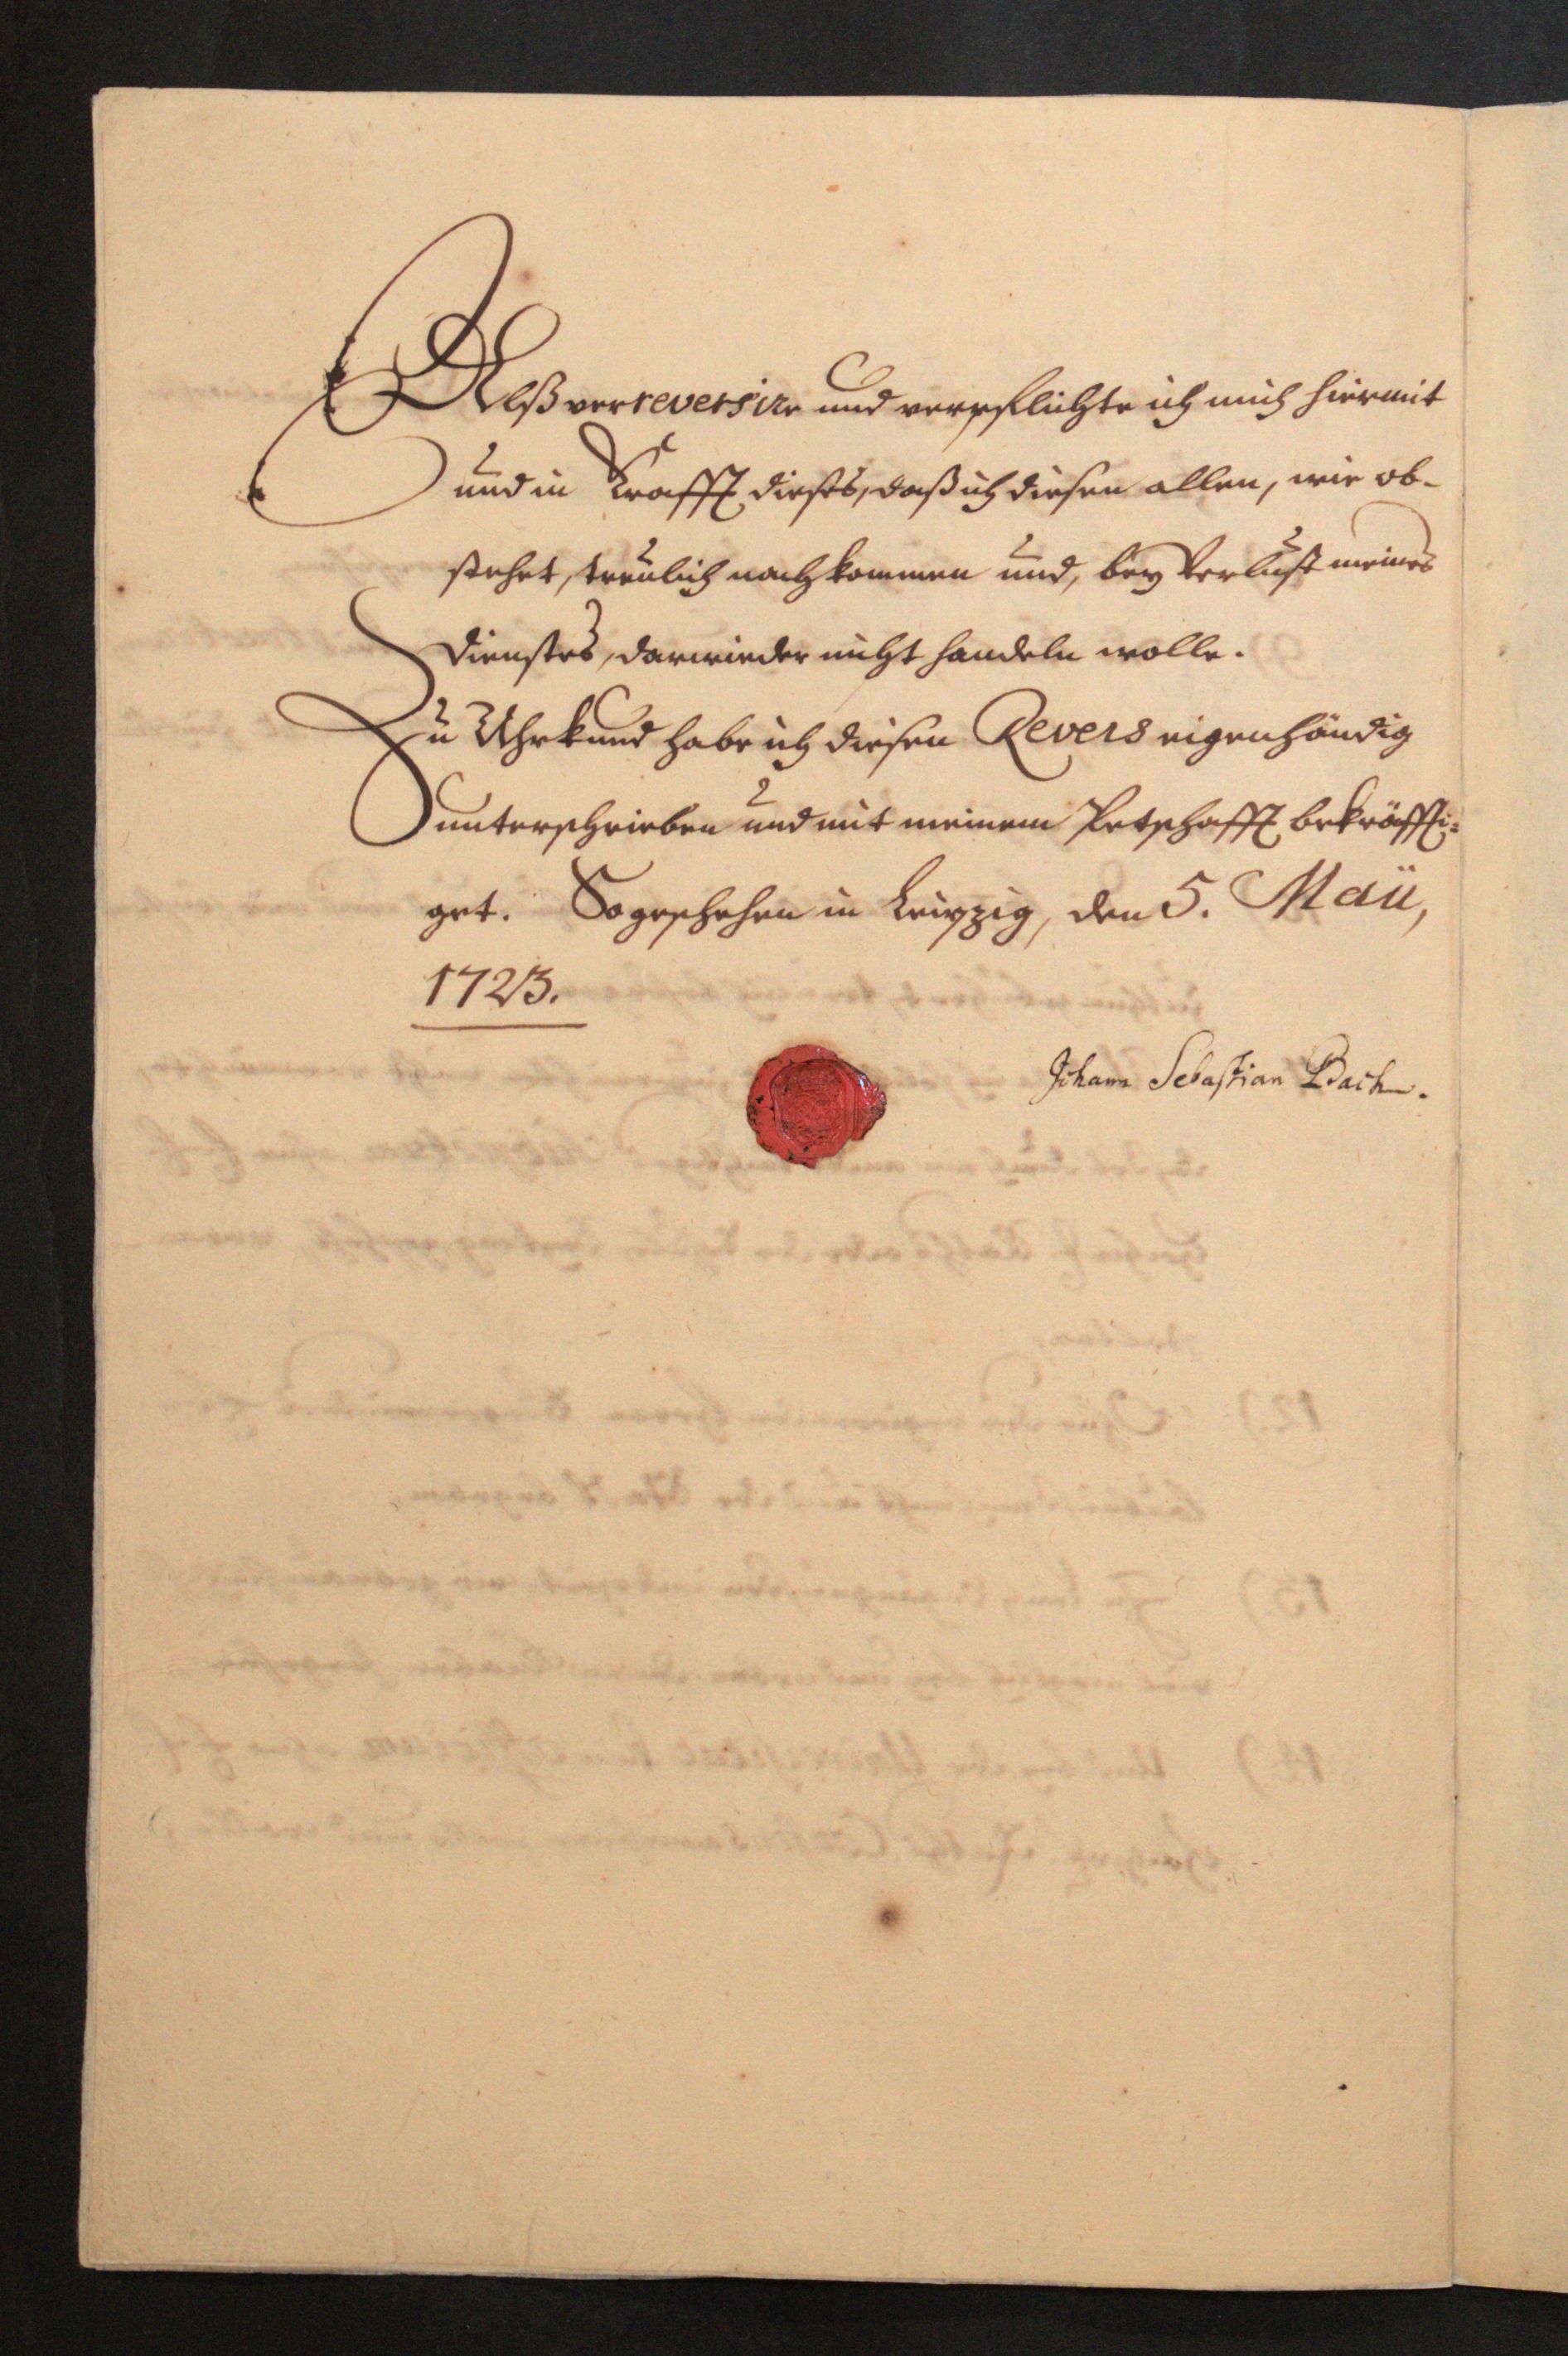 Alß verreversire und verpflichte ich mich hiermit
und in Krafft dieses, daß ich diesen allen, wie ob-
stehet, treulich nachkommen und, bey Verlust meines
Dienstes, darwieder nicht handeln wolle.
Zu Uhrkund habe ich diesen Revers eigenhändig
unterschrieben und mit meinem Petschafft bekräffti=
get. So geschehen in Leipzig, den 5. Maii,
1723.
Johann Sebastian Bach.